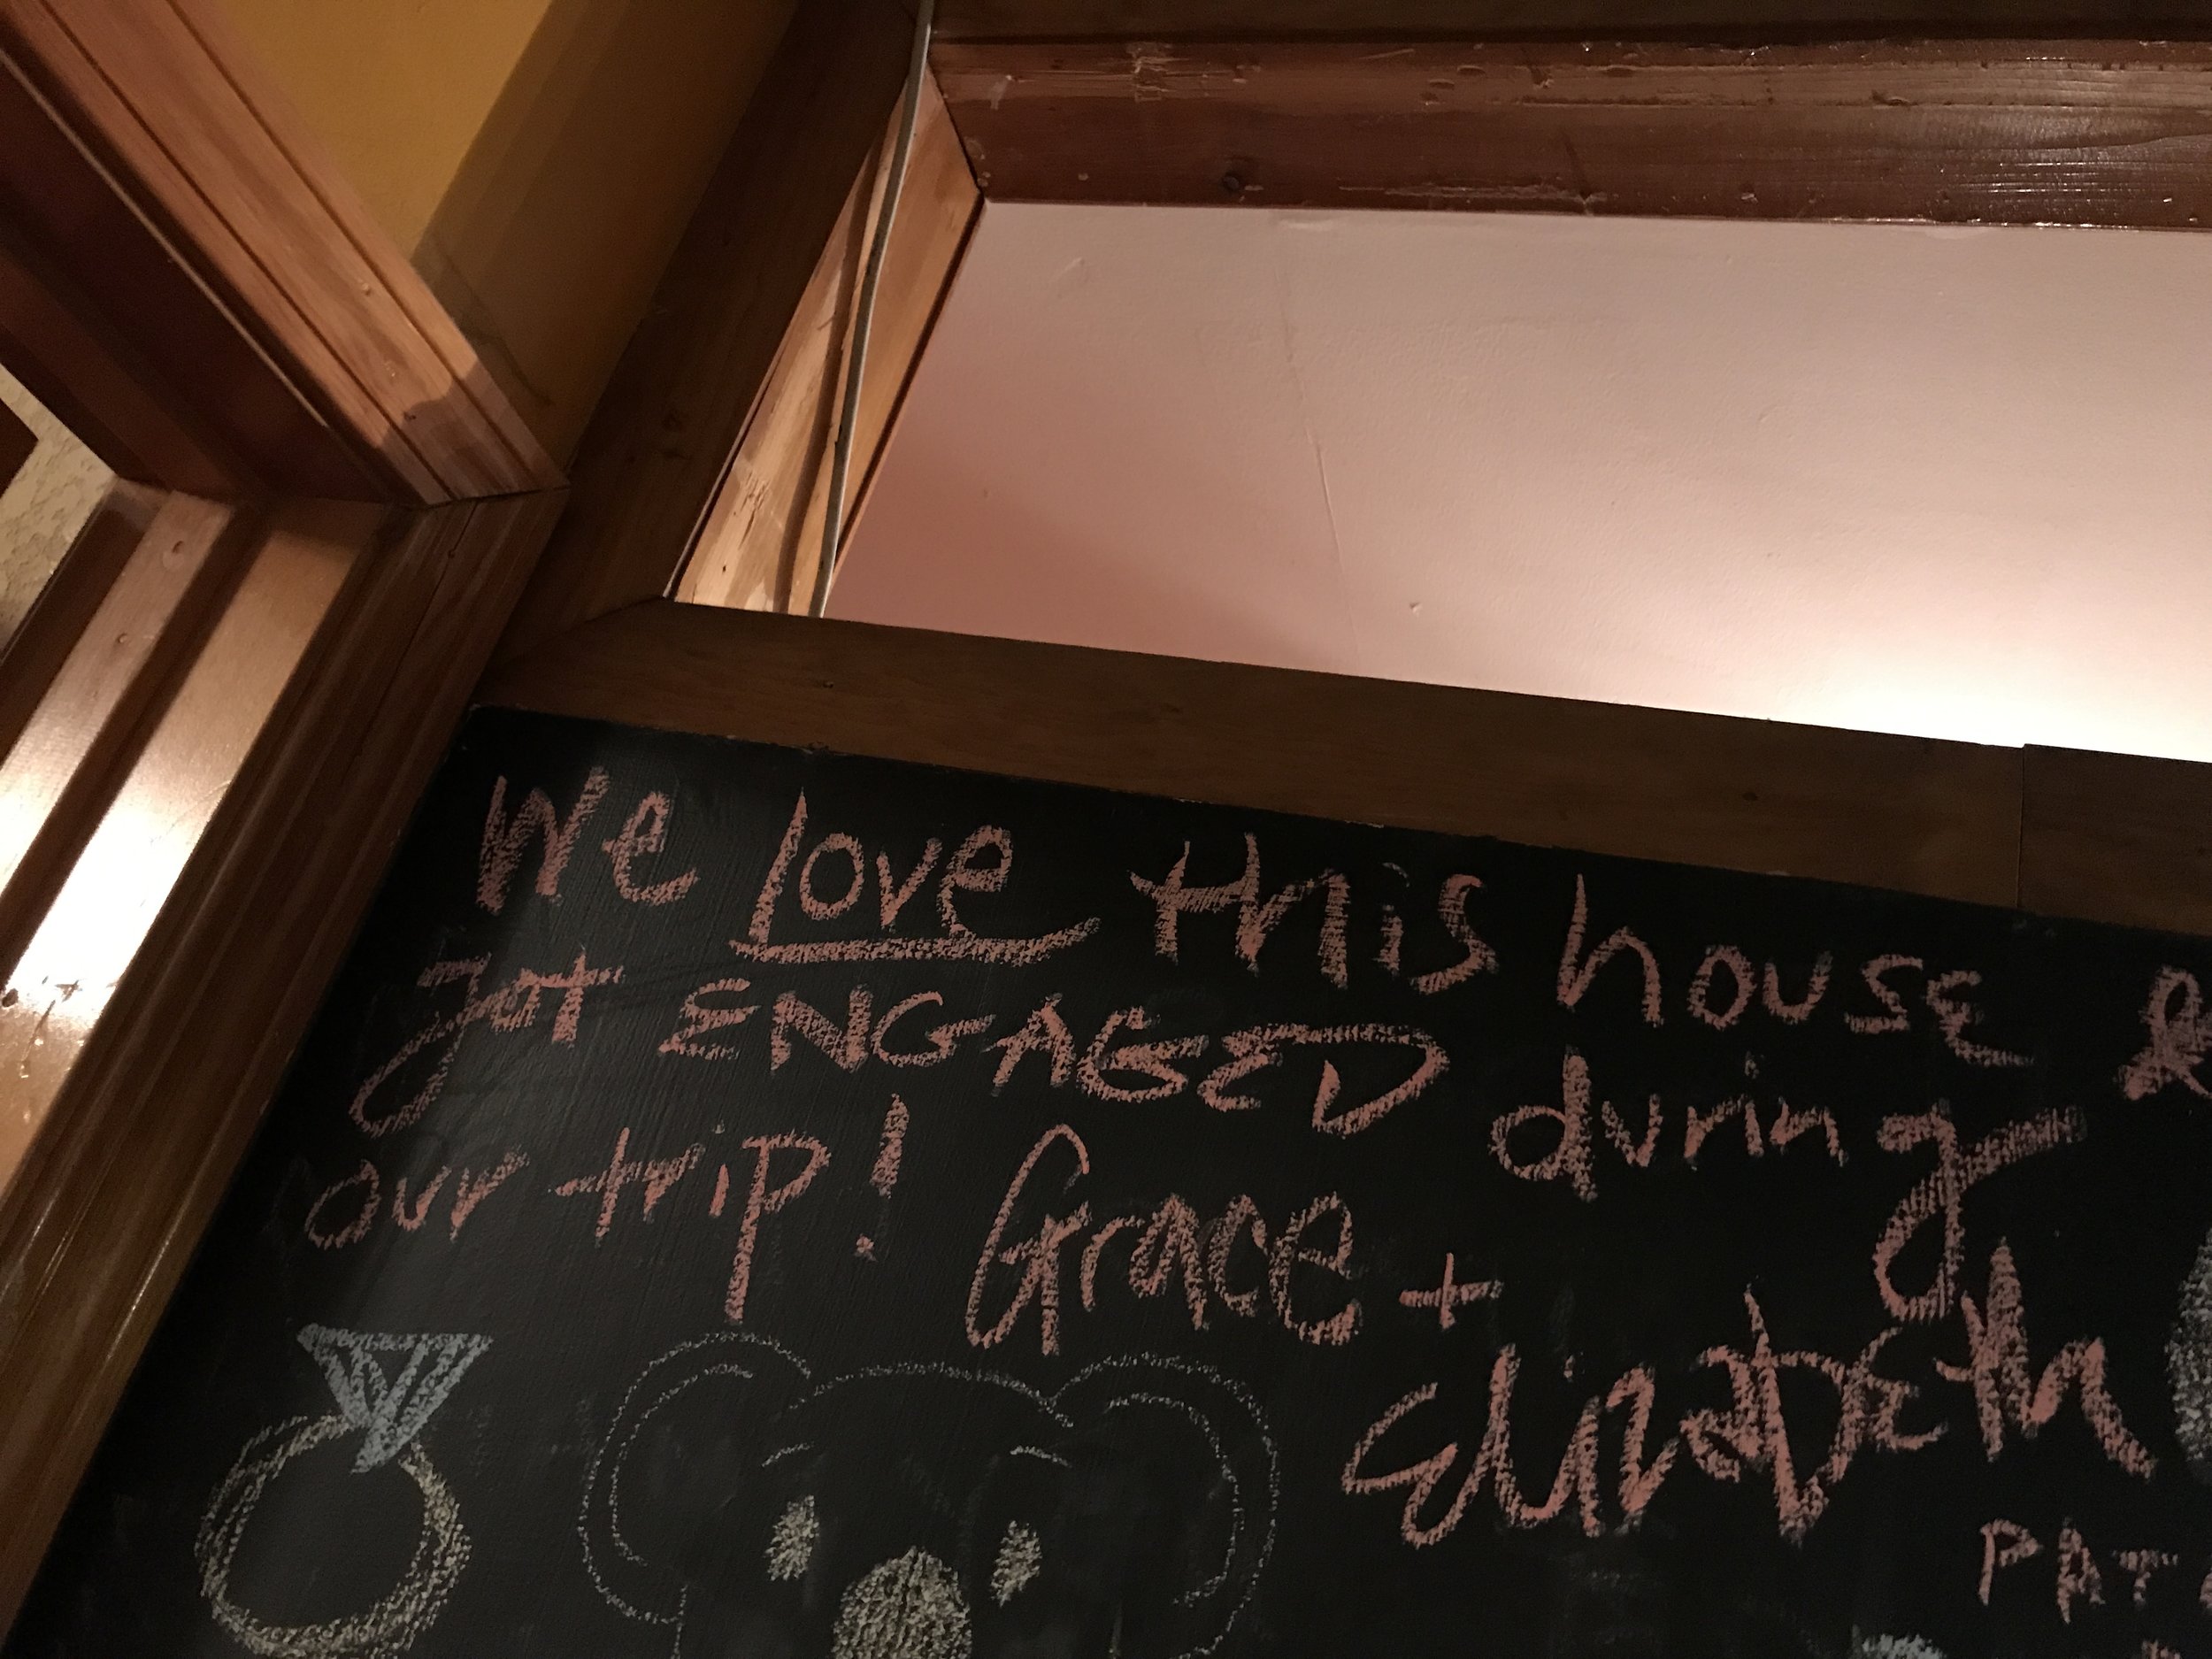 We love this house &
got ENGAGED during
our trip! Grace +
Elizabeth